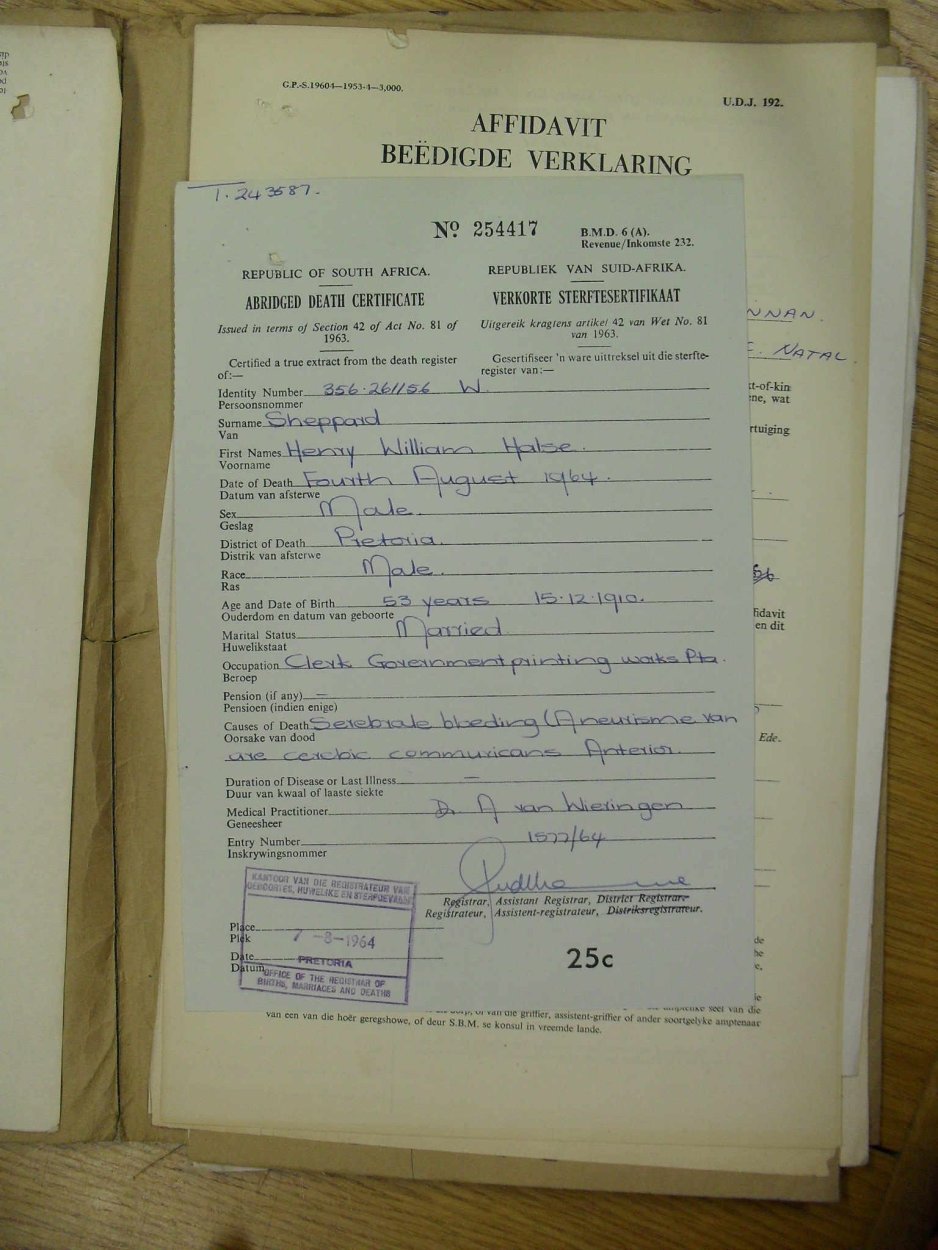 G.P.-S.19604—1953-4—3,000.
U.D.J. 192.
AFFIDAVIT
BEËDIGDE VERKLARING
T. 243587.
Nº 254417
B.M.D. 6 (A).
Revenue/Inkomste 232.
REPUBLIC OF SOUTH AFRICA.
ABRIDGED DEATH CERTIFICATE
Issued in terms of Section 42 of Act No. 81 of
1963.
Certified a true extract from the death register
of:—
REPUBLIEK VAN SUID-AFRIKA.
VERKORTE STERFTESERTIFIKAAT
Uitgereik kragtens artikel 42 van Wet No. 81
van 1963.
Gesertifiseer 'n ware uittreksel uit die sterfte-
register van:—
Identity Number 356·261156 W.
Persoonsnommer
Surname Sheppard
Van
First Names Henry William Halse.
Voorname
Date of Death Fourth August 1964.
Datum van afsterwe
Sex Male.
Geslag
District of Death Pretoria.
Distrik van afsterwe
Race Male.
Ras
Age and Date of Birth 53 years 15·12·1910.
Ouderdom en datum van geboorte
Marital Status Married
Huwelikstaat
Occupation Clerk Government printing works Pta.
Beroep
Pension (if any) —
Pensioen (indien enige)
Causes of Death Serebrale bloeding (Aneurisme van
Oorsake van dood
communicans Anterior.
Duration of Disease or Last Illness —
Duur van kwaal of laaste siekte
Medical Practitioner Dr A van Wieringen
Geneesheer
Entry Number 1577/64
Inskrywingsnommer
Registrar, Assistant Registrar, District Registrar.
Registrateur, Assistent-registrateur, Distriksregistrateur.
KANTOOR VAN DIE REGISTRATEUR VAN
GEBOORTES, HUWELIKE EN STERFGEVALLE
Place
Plek
7-8-1964
Date
PRETORIA
Datum
OFFICE OF THE REGISTRAR OF
BIRTHS, MARRIAGES AND DEATHS
25c
NNAN.
E. NATAL.
kt-of-kin
ene, wat
rtuiging
fidavit
en dit
Ede.
de
he
ie
van die griffier, assistent-griffier of ander soortgelyke amptenaar
seel van die
van een van die hoër geregshowe, of deur S.B.M. se konsul in vreemde lande.